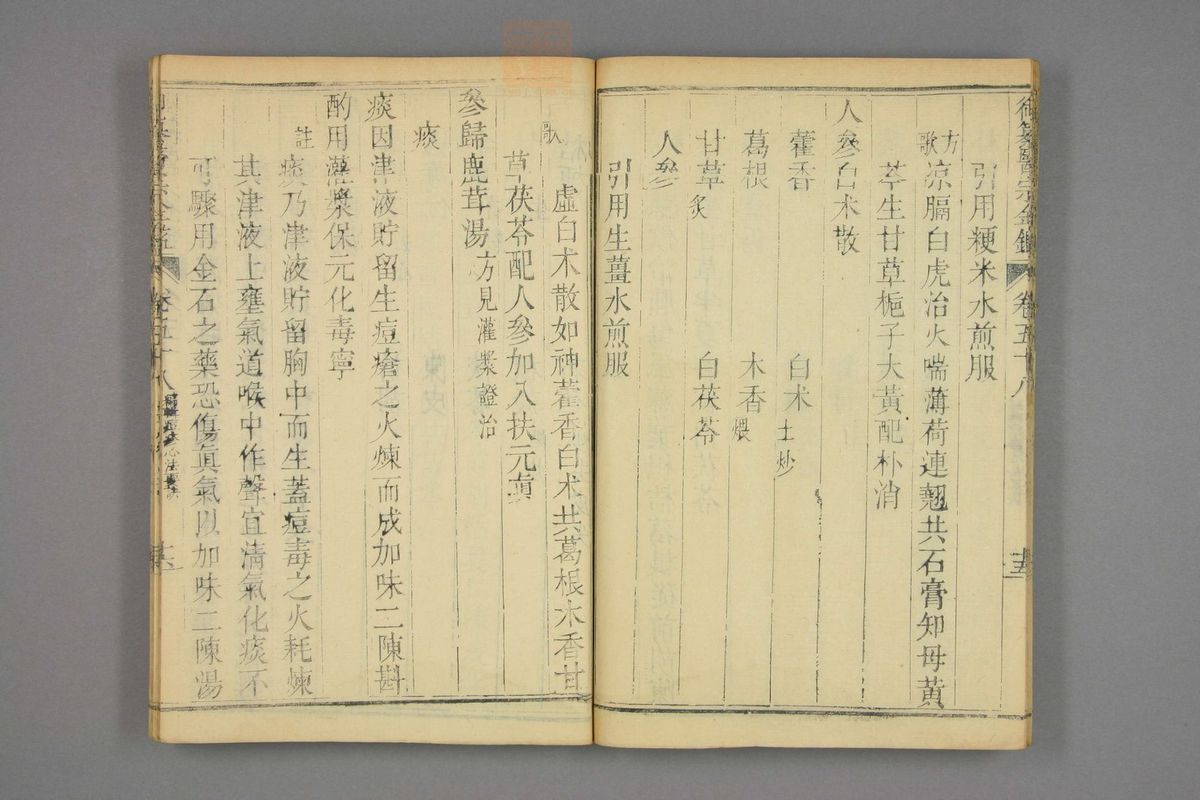 御纂醫宗金鑑 卷五十八 十五
引用粳米水煎服
方歌 凉膈白虎治火喘薄荷連翹共石膏知母黃
芩生甘草梔子大黃配朴消
人參白朮散
藿香 白朮土炒
葛根 木香煨
甘草炙 白茯苓
人參
引用生薑水煎服
歌 虛白朮散如神藿香白朮共葛根木香甘
草茯苓配人參加入扶元眞
參歸鹿茸湯 方見灌漿證治
痰
痰因津液貯留生痘瘡之火煉而成加味二陳斟
酌用灌漿保元化毒寧
註 痰乃津液貯留胸中而生蓋痘毒之火耗煉
其津液上壅氣道喉中作聲宜淸氣化痰不
可驟用金石之藥恐傷眞氣以加味二陳湯
卷五十八